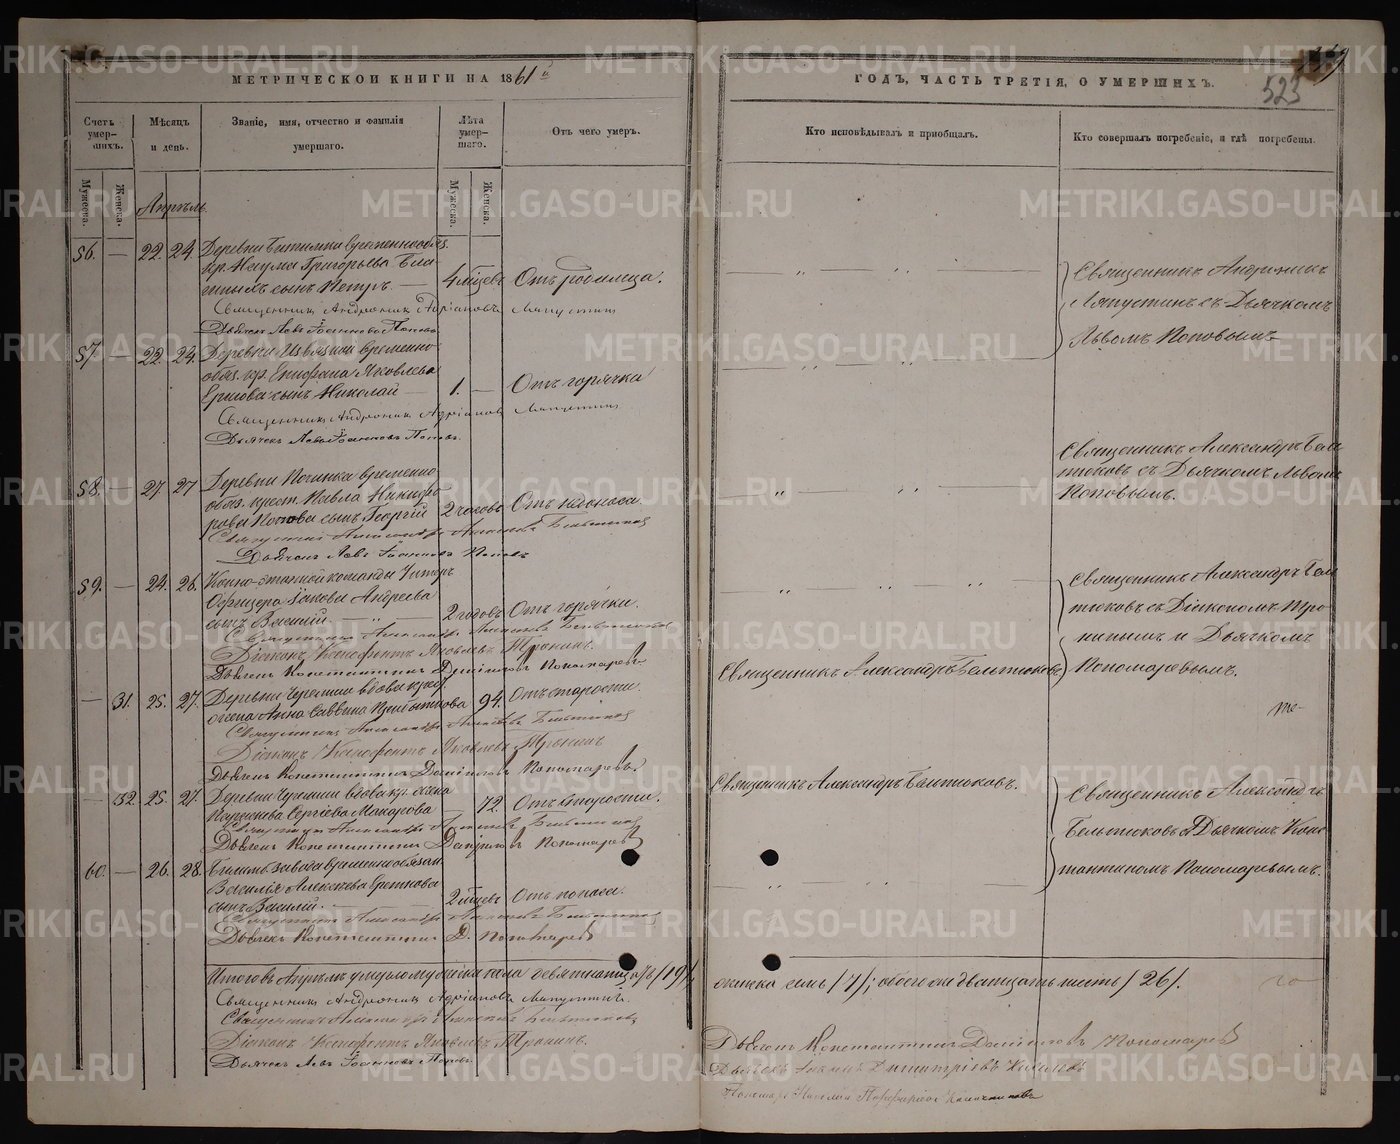 МЕТРИЧЕСКОЙ КНИГИ НА 1861й
ГОДЪ, ЧАСТЬ ТРЕТІЯ, О УМЕРШИХЪ.
523
Счетъ умер-шихъ.
Мѣсяцъ и день.
Званіе, имя, отчество и фамилія умершаго.
Лѣта умер-шаго.
Отъ чего умеръ.
Кто исповѣдывалъ и пріобщалъ.
Кто совершалъ погребеніе, и гдѣ погребены.
Мужеска.
Женска.
Мужеска.
Женска.
Апрѣль.
56. — 22. 24. Деревни Битимки временнообяз.
кр. Наума Григорьева
сынъ Петръ. — 4 мѣсцевъ Отъ родимца.
Священникъ Андроникъ Адріановъ Ляпустинъ
Дьячекъ Левъ Іоанновъ Поповъ
Священникъ Андроникъ
Ляпустинъ съ Дьячкомъ
Львомъ Поповымъ
57. — 22. 24. Деревни временно-
обяз. кр. Епифана Яковлева
Ершова сынъ Николай — 1. — Отъ горячки
Священникъ Андроникъ Адріановъ Ляпустинъ
Дьячекъ Левъ Іоанновъ Поповъ.
58. — 27. 27 Деревни Починка временно-
обяз. крест. Павла Никифо-
рова Попова сынъ Георгій 2 часовъ Отъ
Священникъ Александръ Бельтюковъ
Дьячекъ Левъ Іоанновъ Поповъ
Священникъ Александръ Бель
тюковъ съ Дьячкомъ Львомъ
Поповымъ.
59. — 24. 26. Конно-этапной команды Унтеръ
Офицера Іакова Андреева
сынъ Василій. — 2 годовъ Отъ горячки.
Священникъ Александръ Бельтюковъ
Діаконъ Ксенофонтъ Яковлевъ Тронинъ.
Дьячекъ Константинъ Даніиловъ Пономаревъ
Священникъ Александръ Бель
тюковъ съ Діакономъ Тро
нинымъ и Дьячкомъ
Пономаревымъ.
— 31. 25. 27. Деревни Черемши вдова крест.
жена Анна Саввина 94. Отъ старости.
Священникъ Александръ Бельтюковъ
Діаконъ Ксенофонтъ Яковлевъ Тронинъ
Дьячекъ Константинъ Даніиловъ Пономаревъ.
Священникъ Александръ Бельтюковъ
— 32. 25. 27. Деревни Черемши вдова кр. жена
Сергіева Макарова — 72. Отъ старости.
Священникъ Александръ Бельтюковъ
Дьячекъ Константинъ Даніиловъ Пономаревъ
Священникъ Александръ Бельтюковъ.
Священникъ Александръ
Бельтюковъ съ Дьячкомъ Конс
тантиномъ Пономаревымъ.
60. — 26. 28. Билимб. завода временнообязан.
Василья Алексѣева
сынъ Василій. — 2 мѣсцевъ Отъ поноса.
Священникъ Александръ Бельтюковъ
Дьячекъ Константинъ Д. Пономаревъ
Итого въ Апрѣлѣ умерло мужеска пола девятнадцать (19),
женска семь (7); обоего же двадцать шесть (26).
Священникъ Андроникъ Адріановъ Ляпустинъ.
Священникъ Александръ Бельтюковъ
Діаконъ Ксенофонтъ Яковлевъ Тронинъ.
Дьячекъ Левъ Іоанновъ Поповъ.
Дьячекъ Константинъ Даніиловъ Пономаревъ
Дьячекъ Іоаннъ Димитріевъ
METRIKI.GASO-URAL.RU